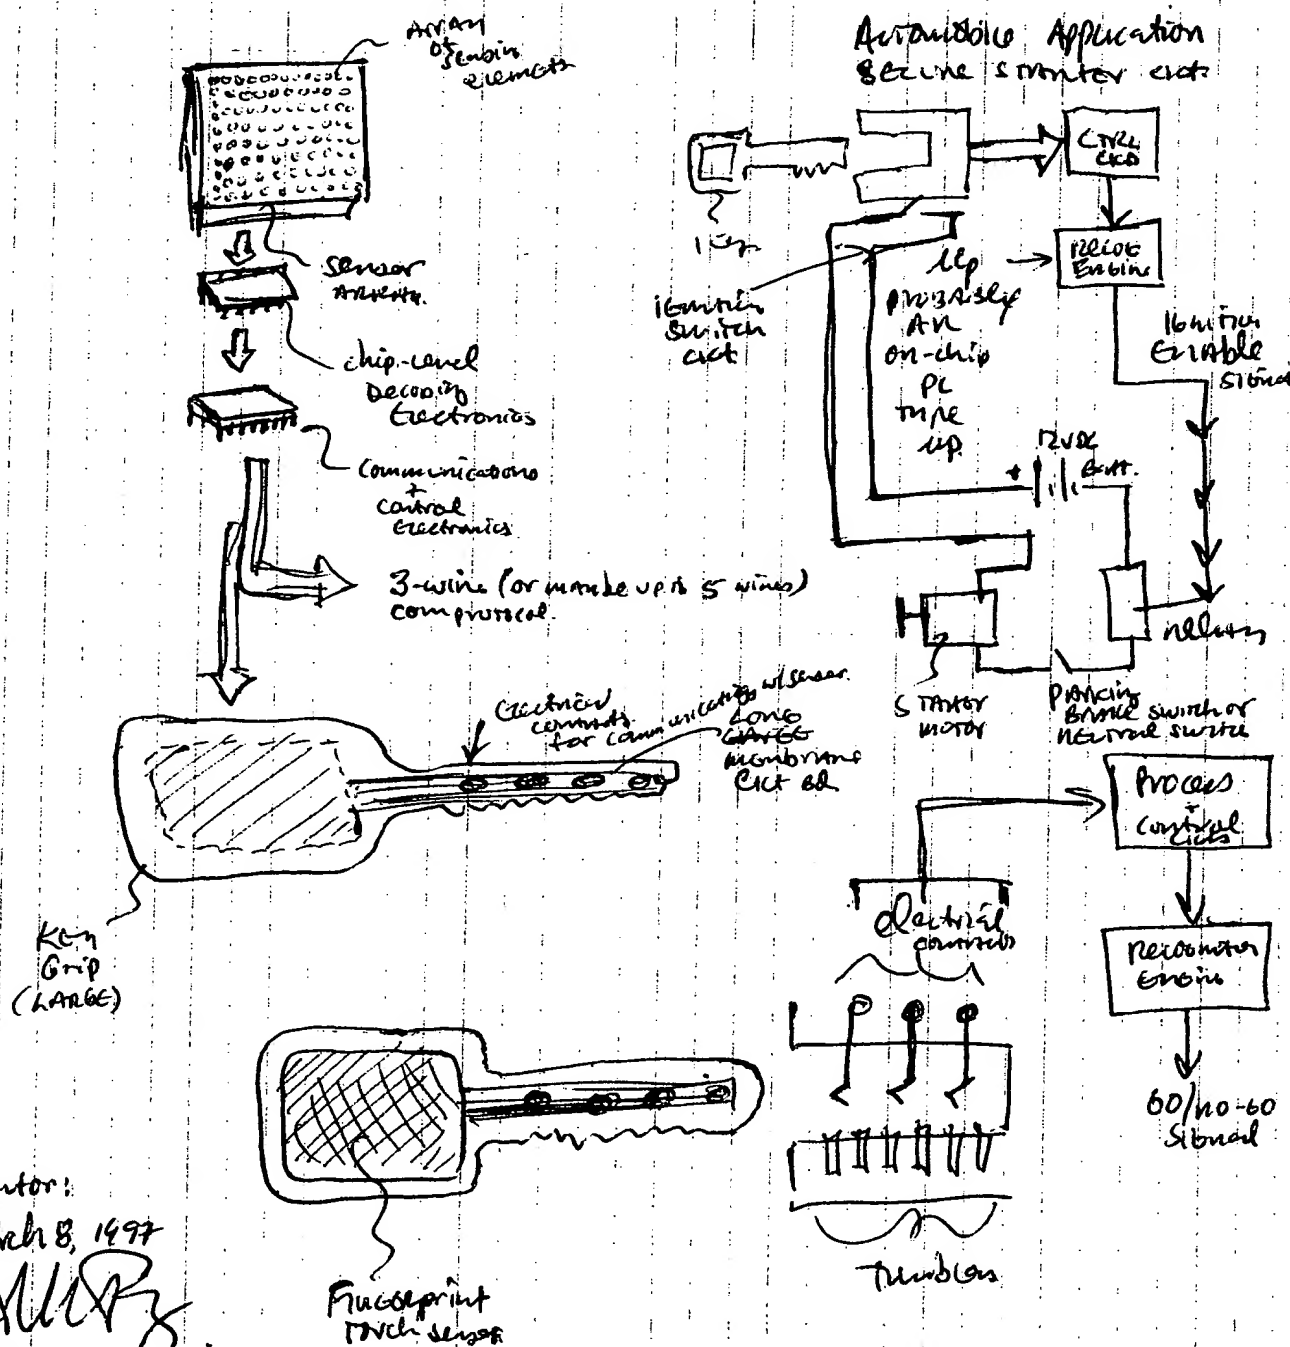 Array
of
Sensing
elements
Sensor
Array.
chip-level
Decoding
Electronics
Communications
+
Control
Electronics
3-wire (or maybe up to 5 wires)
com protocol.
Electrical
contacts
for communication w/sensor.
Long
membrane
Ckt Bd
Key
Grip
(LARGE)
Fingerprint
touch sensor
ntor:
rch 8, 1997
Automobile Application
Secure Starter ckt
Key
Ctrl
Ckt
Recog
Engine
µp
probably
An
on-chip
PC
type
µp.
ignition
switch
ckt
Ignition
Enable
Signal
12VDC
Batt.
+
relay
Starter
motor
Parking
Brake switch or
neutral switch
Process
+
Control
Ckts
electrical
contacts
Recognition
Engine
GO/NO-GO
Signal
Tumblers